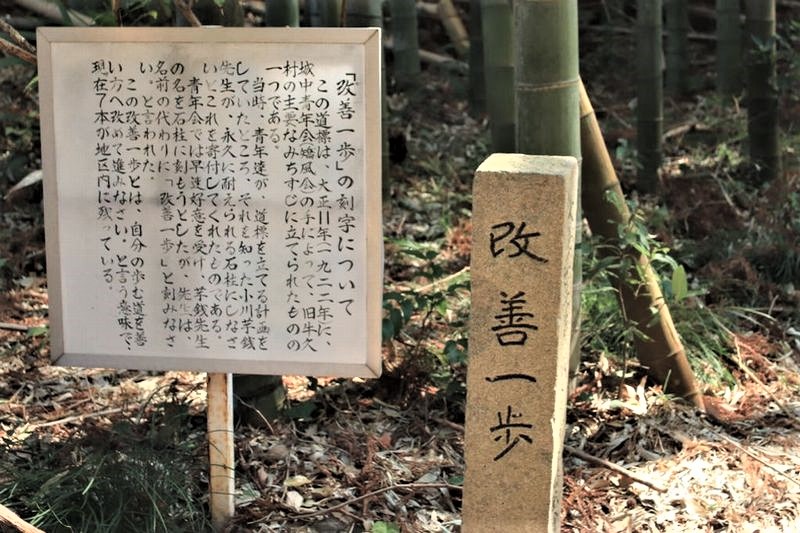 「改善一歩」の刻字について
この道標は、大正11年(一九二二年)に、
城中青年会矯風会の手によって、旧牛久
村の主要なみちすじに立てられたものの
一つである。
当時、青年達が、道標を立てる計画を
していたところ、それを知った小川芋銭
先生が、永久に耐えられる石柱にしなさ
いとこれを寄付してくれたものである。
青年会では早速好意を受け、芋銭先生
の名を石柱に刻もうとしたが、先生は、
名前の代わりに「改善一歩」と刻みなさ
い。と言われた。
この改善一歩とは、自分の歩む道を善
い方へ改めて進みなさい。と言う意味で、
現在7本が地区内に残っている。
改善一歩